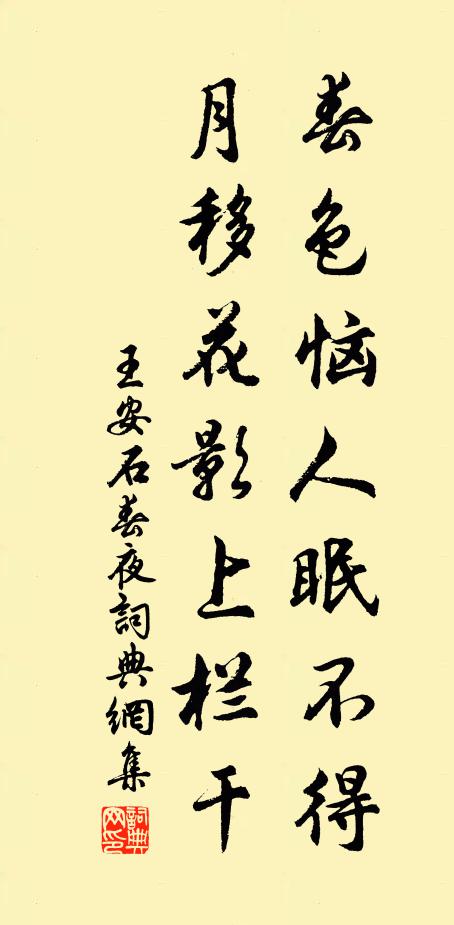 春色恼人眠不得
月移花影上栏干
王安石春夜詞典網集
詞典网印